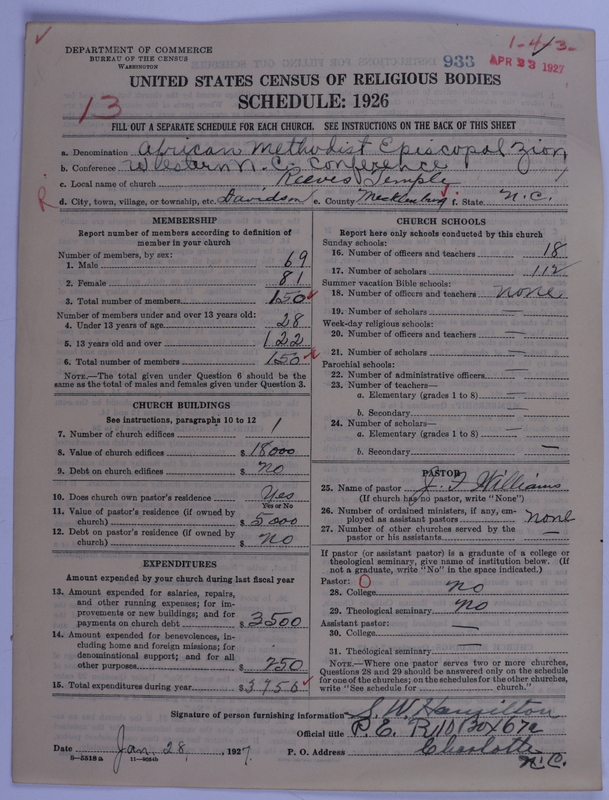 1-4-3-
DEPARTMENT OF COMMERCE
BUREAU OF THE CENSUS
WASHINGTON
933
APR 23 1927
UNITED STATES CENSUS OF RELIGIOUS BODIES
13
SCHEDULE: 1926
FILL OUT A SEPARATE SCHEDULE FOR EACH CHURCH. SEE INSTRUCTIONS ON THE BACK OF THIS SHEET
a. Denomination African Methodist Episcopal Zion
b. Conference Western N. C. Conference
c. Local name of church Reeves Temple
d. City, town, village, or township, etc. Davidson e. County Mecklenburg f. State N.C.
MEMBERSHIP
Report number of members according to definition of member in your church
Number of members, by sex:
1. Male 69
2. Female 81
3. Total number of members 150
Number of members under and over 13 years old:
4. Under 13 years of age 28
5. 13 years old and over 122
6. Total number of members 150
NOTE.—The total given under Question 6 should be the same as the total of males and females given under Question 3.
CHURCH BUILDINGS
See instructions, paragraphs 10 to 12
7. Number of church edifices 1
8. Value of church edifices $ 18000
9. Debt on church edifices $ No
10. Does church own pastor's residence Yes
Yes or No
11. Value of pastor's residence (if owned by church) $ 5000
12. Debt on pastor's residence (if owned by church) $ No
EXPENDITURES
Amount expended by your church during last fiscal year
13. Amount expended for salaries, repairs, and other running expenses; for improvements or new buildings; and for payments on church debt $ 3500
14. Amount expended for benevolences, including home and foreign missions; for denominational support; and for all other purposes $ 250
15. Total expenditures during year $ 3750
CHURCH SCHOOLS
Report here only schools conducted by this church
Sunday schools:
16. Number of officers and teachers 18
17. Number of scholars 112
Summer vacation Bible schools:
18. Number of officers and teachers none
19. Number of scholars —
Week-day religious schools:
20. Number of officers and teachers —
21. Number of scholars —
Parochial schools:
22. Number of administrative officers —
23. Number of teachers—
a. Elementary (grades 1 to 8) —
b. Secondary —
24. Number of scholars—
a. Elementary (grades 1 to 8) —
b. Secondary —
PASTOR
25. Name of pastor J. F. Williams
(If church has no pastor, write "None")
26. Number of ordained ministers, if any, employed as assistant pastors none
27. Number of other churches served by the pastor or his assistants —
If pastor (or assistant pastor) is a graduate of a college or theological seminary, give name of institution below. (If not a graduate, write "No" in the space indicated.)
Pastor: 0
28. College no
29. Theological seminary no
Assistant pastor:
30. College —
31. Theological seminary —
NOTE.—Where one pastor serves two or more churches, Questions 28 and 29 should be answered only on the schedule for one of the churches; on the schedules for the other churches, write "See schedule for church."
Signature of person furnishing information S. W. Hamilton
Official title P. E. R 10 Box 67a
Date Jan 28, 1927. P. O. Address Charlotte N.C.
8-5518a 11-9064b